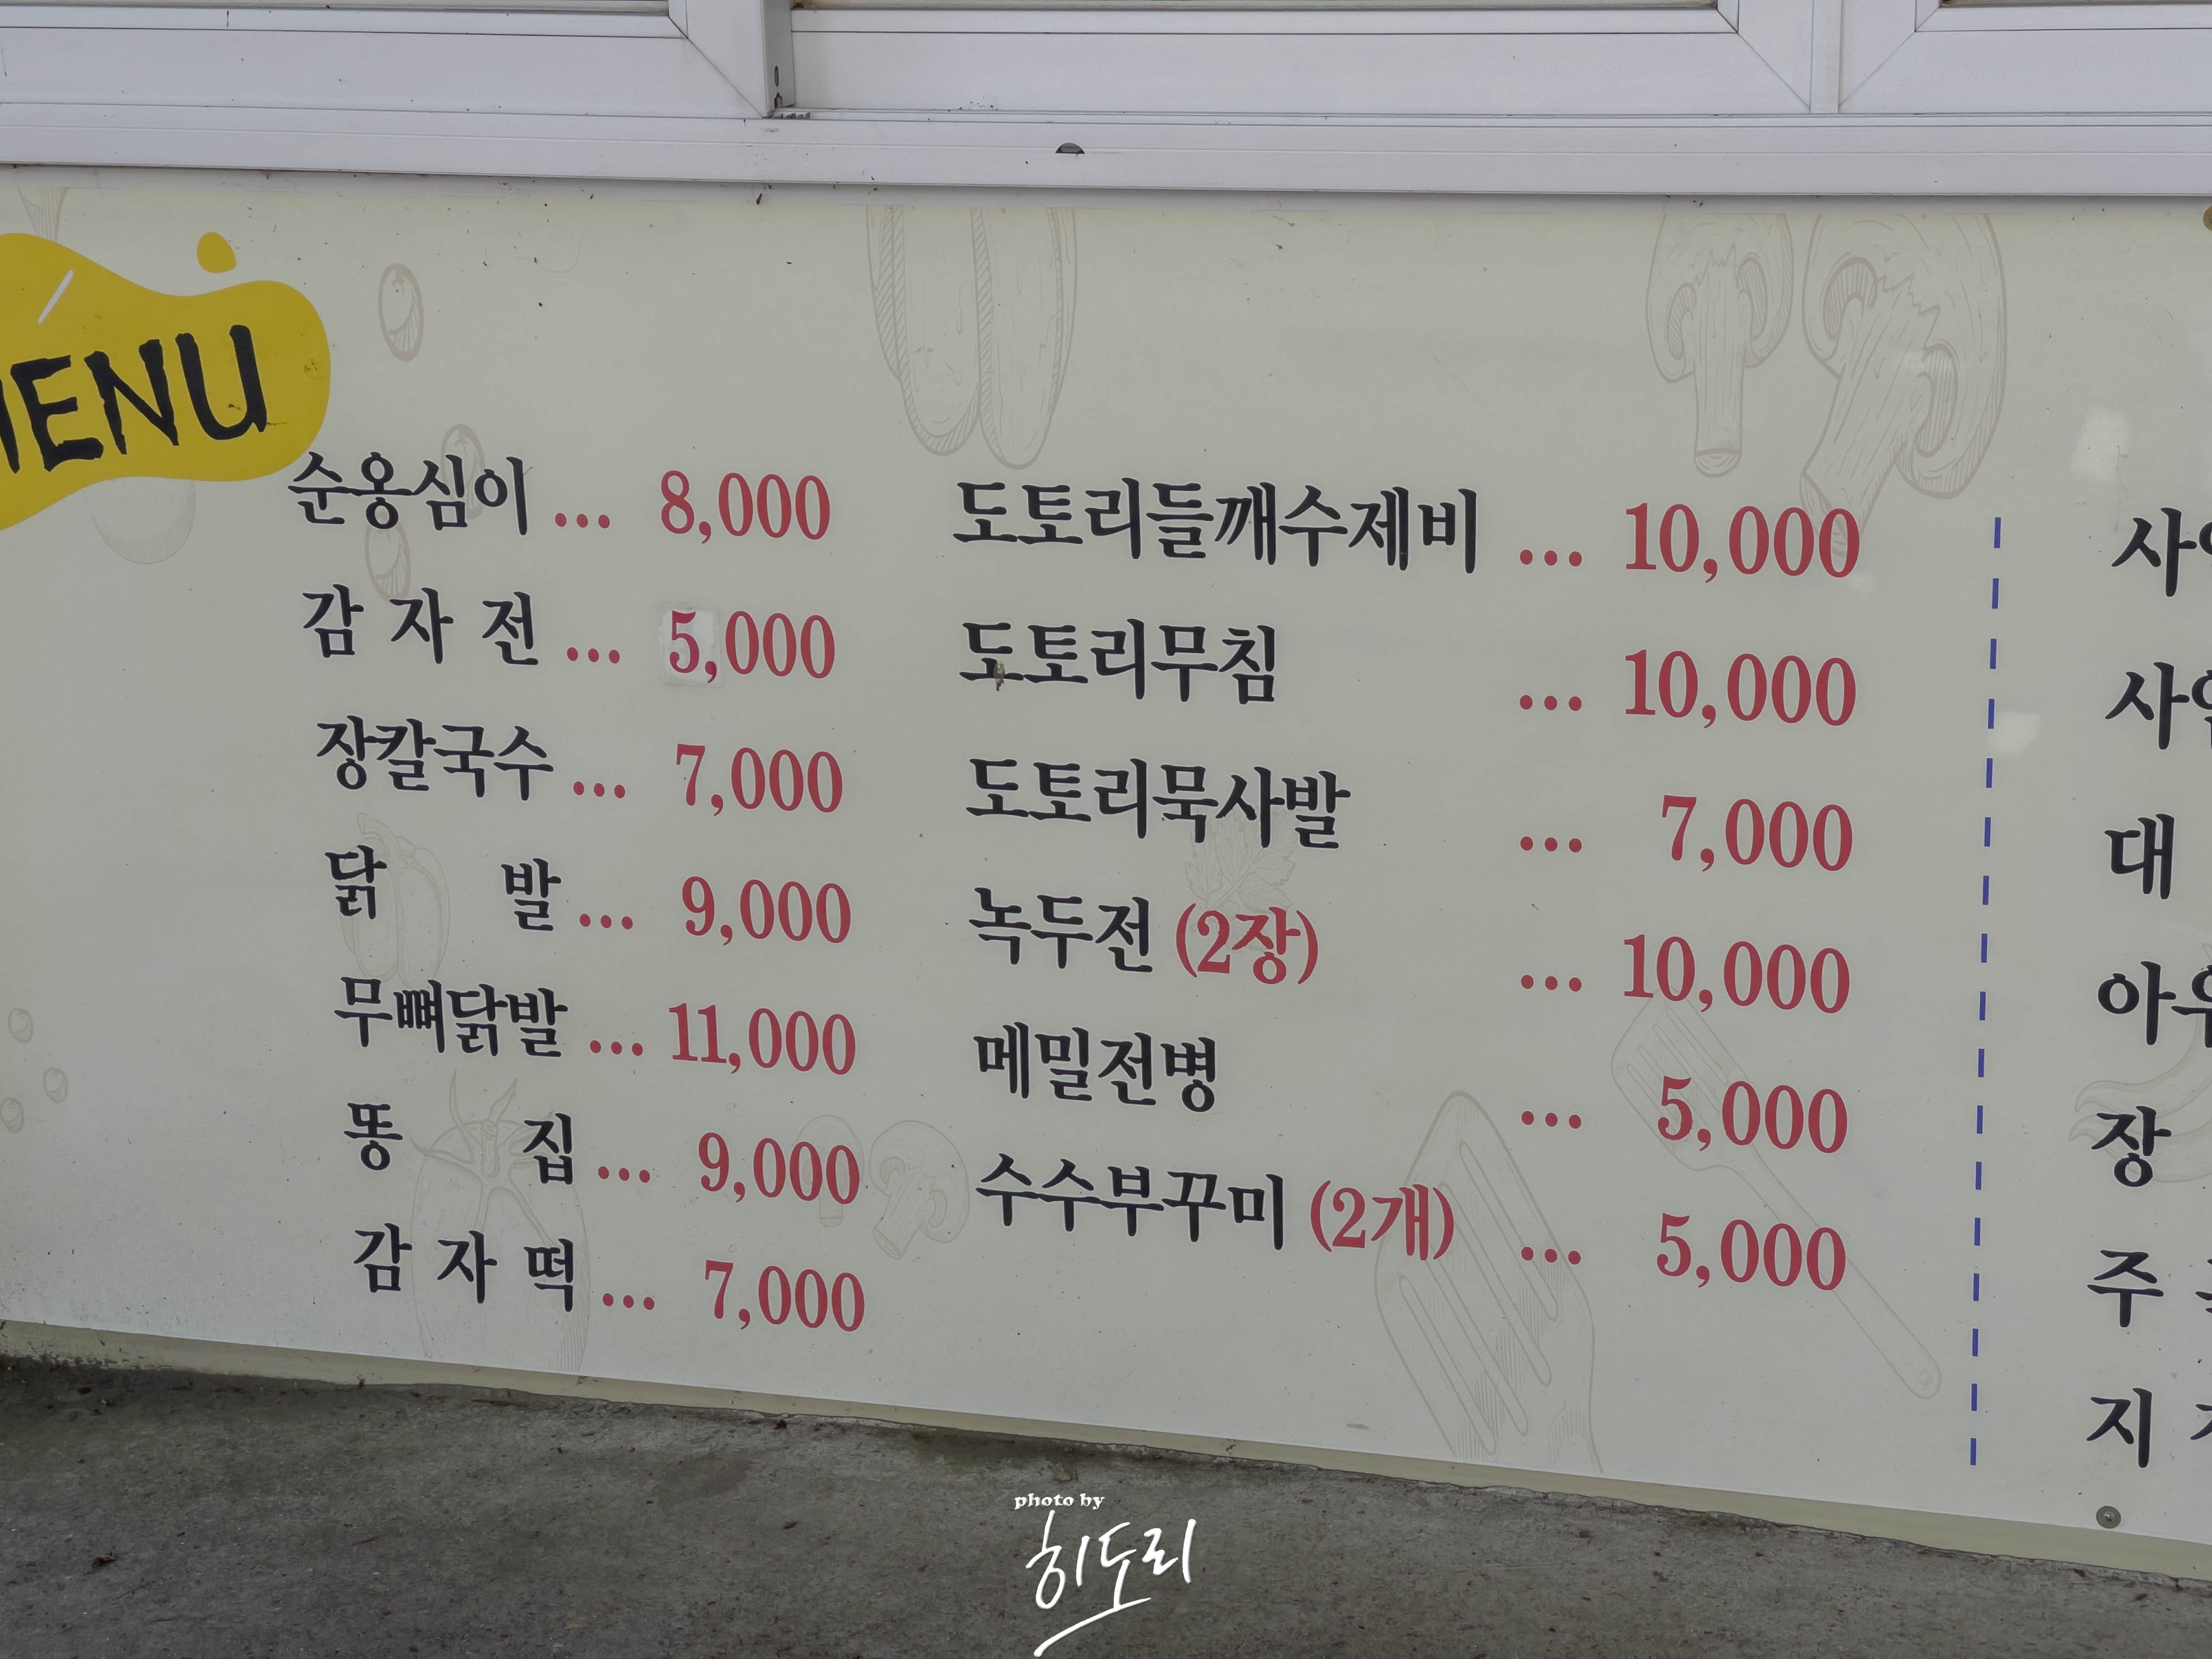 MENU
순옹심이 ... 8,000
감 자 전 ... 5,000
장칼국수 ... 7,000
닭 발 ... 9,000
무뼈닭발 ... 11,000
똥 집 ... 9,000
감 자 떡 ... 7,000
도토리들깨수제비 ... 10,000
도토리무침 ... 10,000
도토리묵사발 ... 7,000
녹두전 (2장) ... 10,000
메밀전병 ... 5,000
수수부꾸미 (2개) ... 5,000
대
장
주
지
photo by
히도리